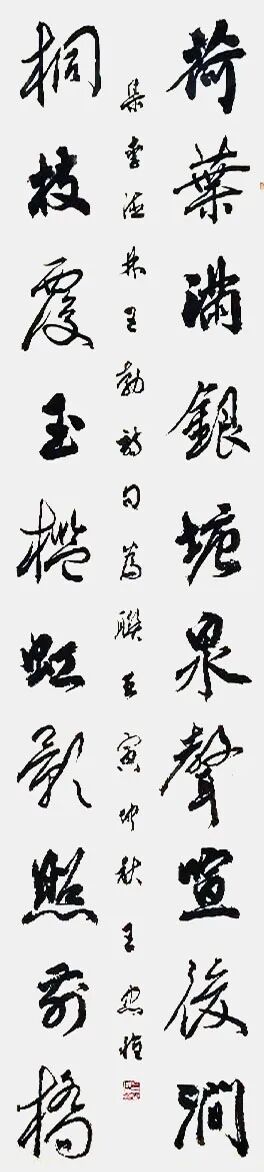 荷葉滿銀塘泉聲喧後澗
桐枝覆玉檻虹影照前橋
集李德林王勃詩句為聯壬寅仲秋王